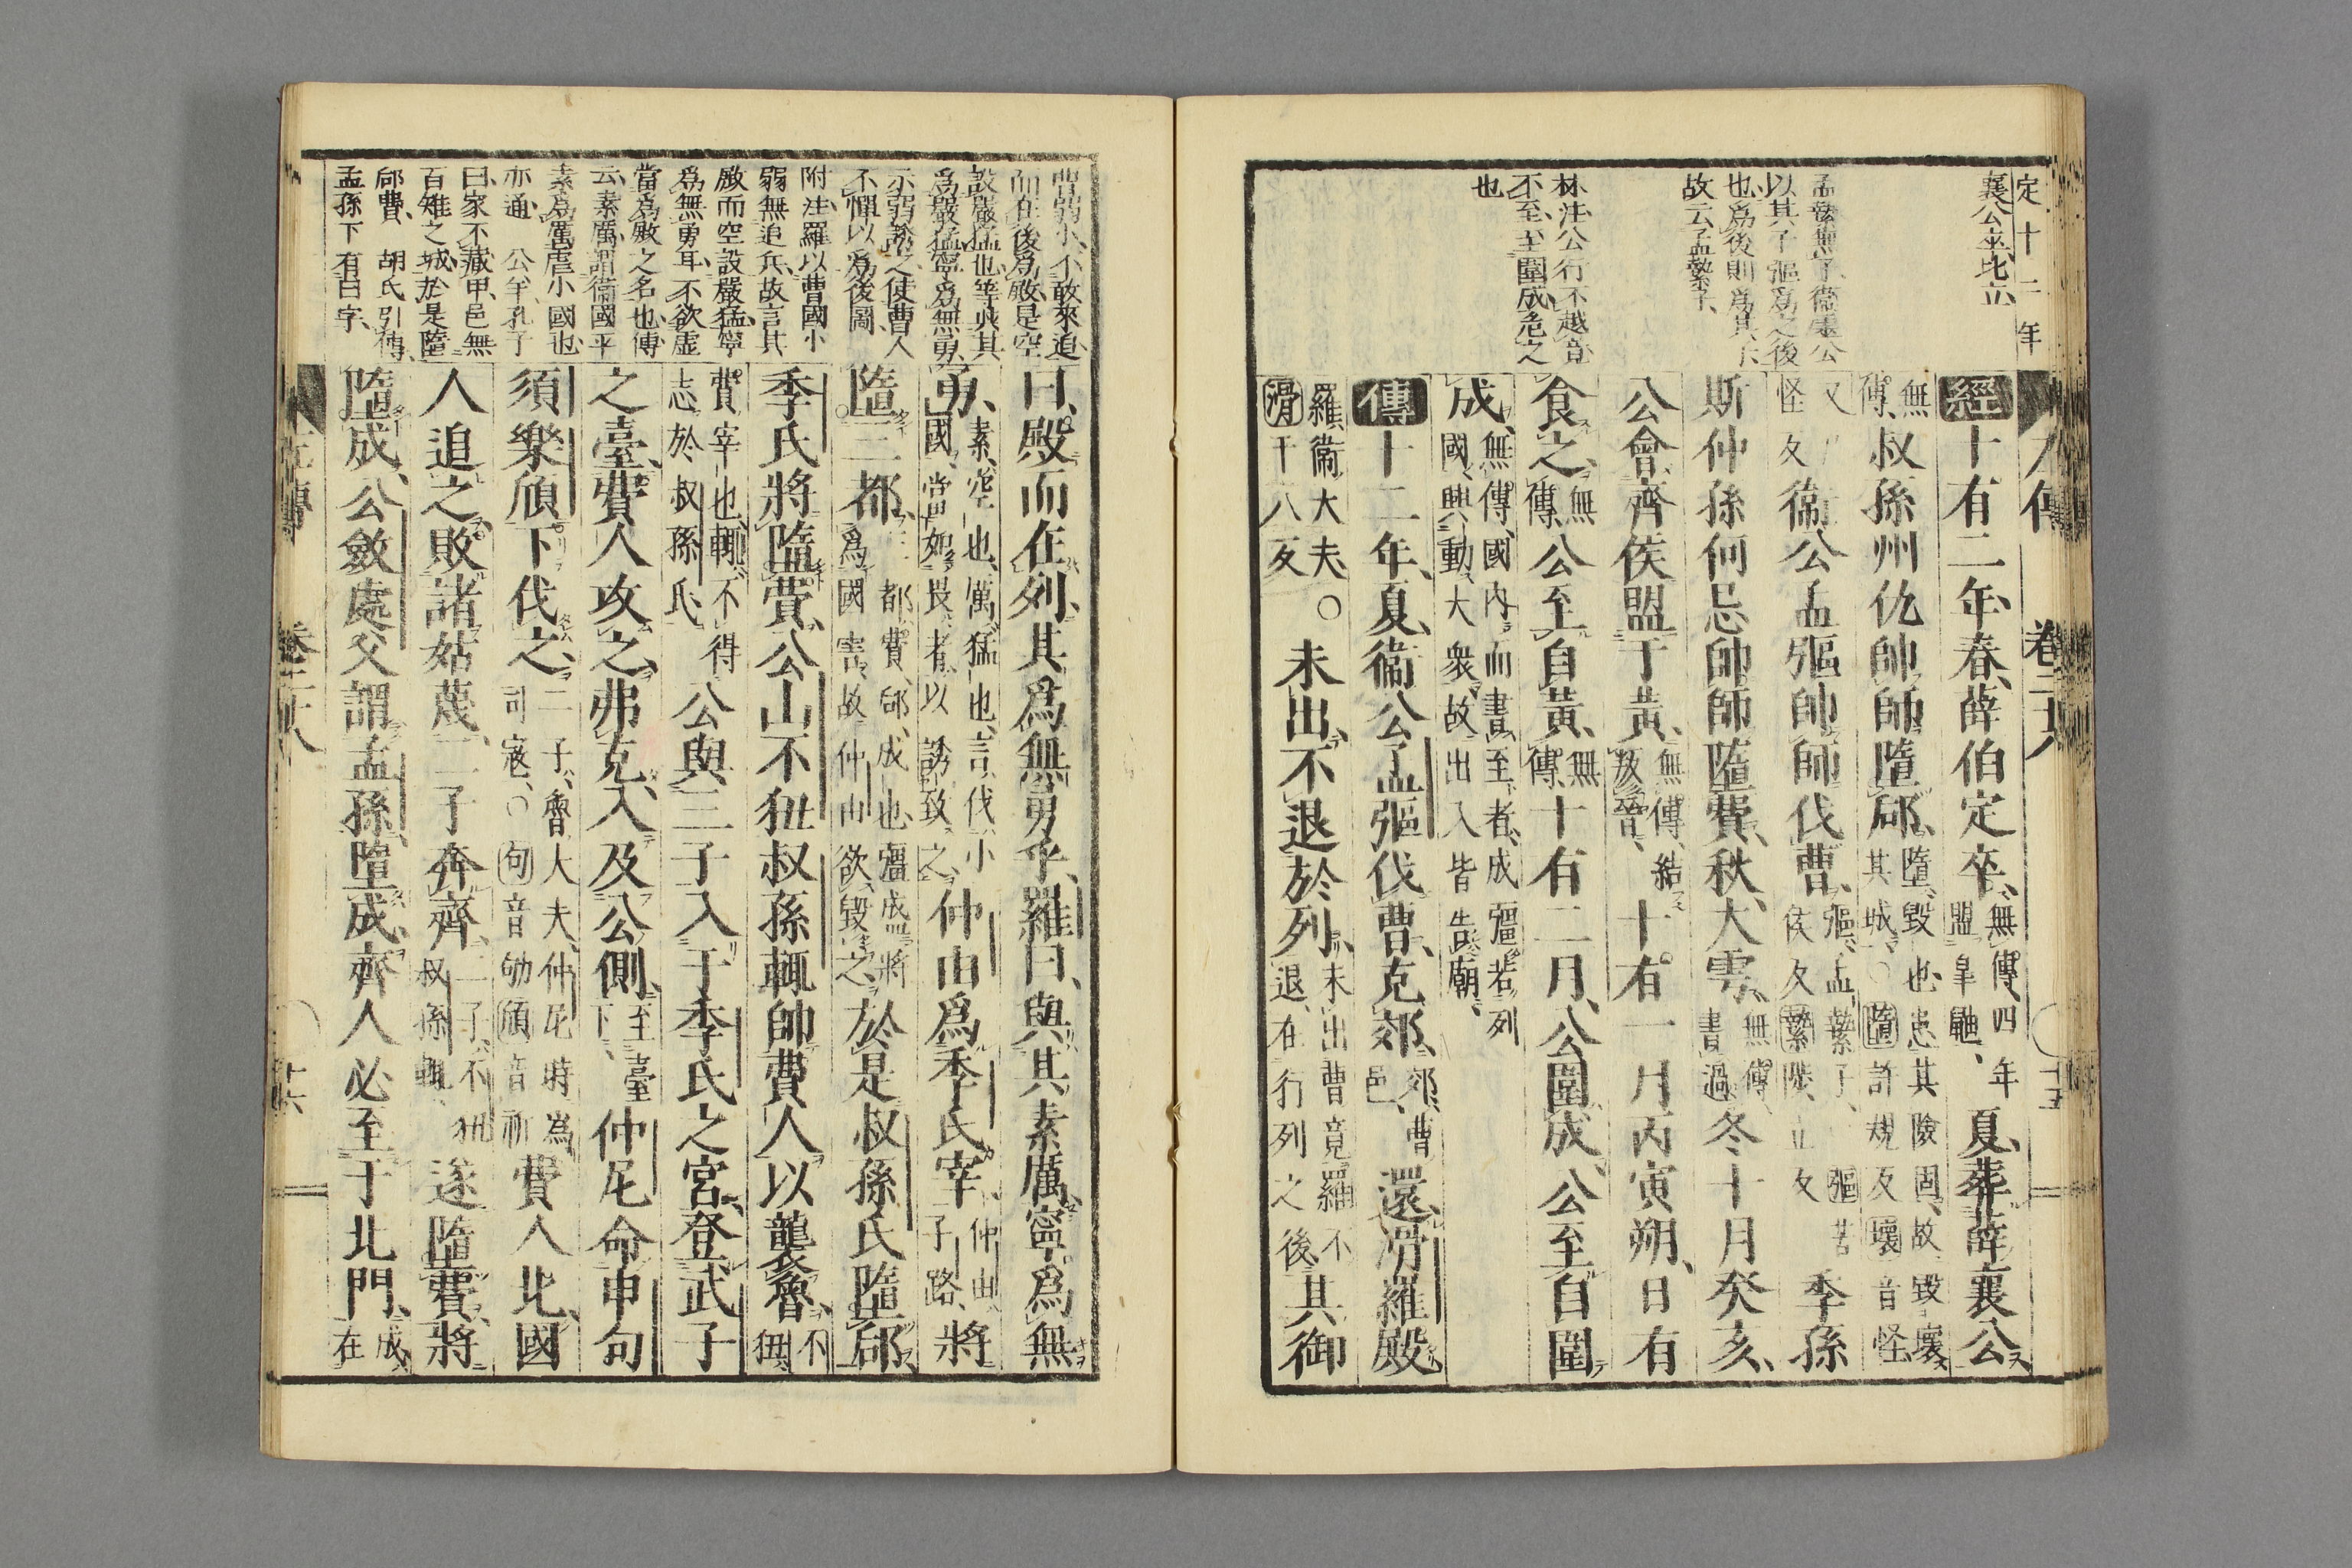 定十二年
襄公坐比立
孟縶無子、衞靈公
以其子彄爲之後
也、爲後則爲其子、
故云、孟縶子、
林注、公行不越竟
不至、至圍成、危之
也
左傳 卷二十八 十五
經十有二年、春、薛伯定卒、無傳、四年盟皐鼬、夏、葬薛襄公
無傳、叔孫州仇帥師墮郈、墮、毀也、患其險固、故毀壞其城、○墮許規反壞音怪
又怪反衞公孟彄帥師伐曹、彄、孟縶子、彄苦侯反縶陟立反季孫
斯仲孫何忌帥師墮費、秋、大雩、無傳、書過、冬十月癸亥、
公會齊侯盟于黃、無傳、結叛晉、十有一月丙寅朔、日有
食之、無傳、公至自黃、無傳、十有二月、公圍成、公至自圍
成、無傳、國内而書至者、成彊若列國、興動大衆、故出入皆告廟、
傳十二年、夏、衞公孟彄伐曹、克郊、郊、曹邑、還、滑羅殿
羅、衞大夫、○滑于八反未出、不退於列、未出曹竟羅不退在行列之後其御
曹弱小、不敢來追
而在後爲殿、是空
設嚴猛也、等與其
爲嚴猛、寧爲無勇、
示弱誘之、使曹人
不憚以爲後圖、
附注、羅以曹國小
弱無追兵、故言其
殿而空設嚴猛、寧
爲無勇耳、不欲虛
當爲殿之名也、傅
云、素厲謂衞國平
素爲厲虐小國也、
亦通 公羊、孔子
曰、家不藏甲、邑無
百雉之城、於是墮
郈費、 胡氏引傳、
孟孫下有曰字、
曰、殿而在列、其爲無勇乎、羅曰、與其素厲、寧爲無
勇、素、空也、厲、猛也、言、伐小國、當如畏者、以誘致之、仲由爲季氏宰、仲由、子路、將
墮三都、三都、費、郈、成也、彊盛、將爲國害、故仲由欲毀之、於是叔孫氏墮郈、
季氏將墮費、公山不狃叔孫輒帥費人以襲魯、不狃、
費宰也、輒、不得志於叔孫氏、公與三子入于季氏之宮、登武子
之臺、費人攻之、弗克、入及公側、至臺下、仲尼命申句
須樂頎下伐之、二子、魯大夫、仲尼時爲司寇、○句音劬頎音祈費人北、國
人追之、敗諸姑蔑、二子奔齊、二子、不狃叔孫輒、遂墮費、將
墮成、公斂處父謂孟孫、墮成、齊人必至于北門、成、在
左傳 卷二十八 十六